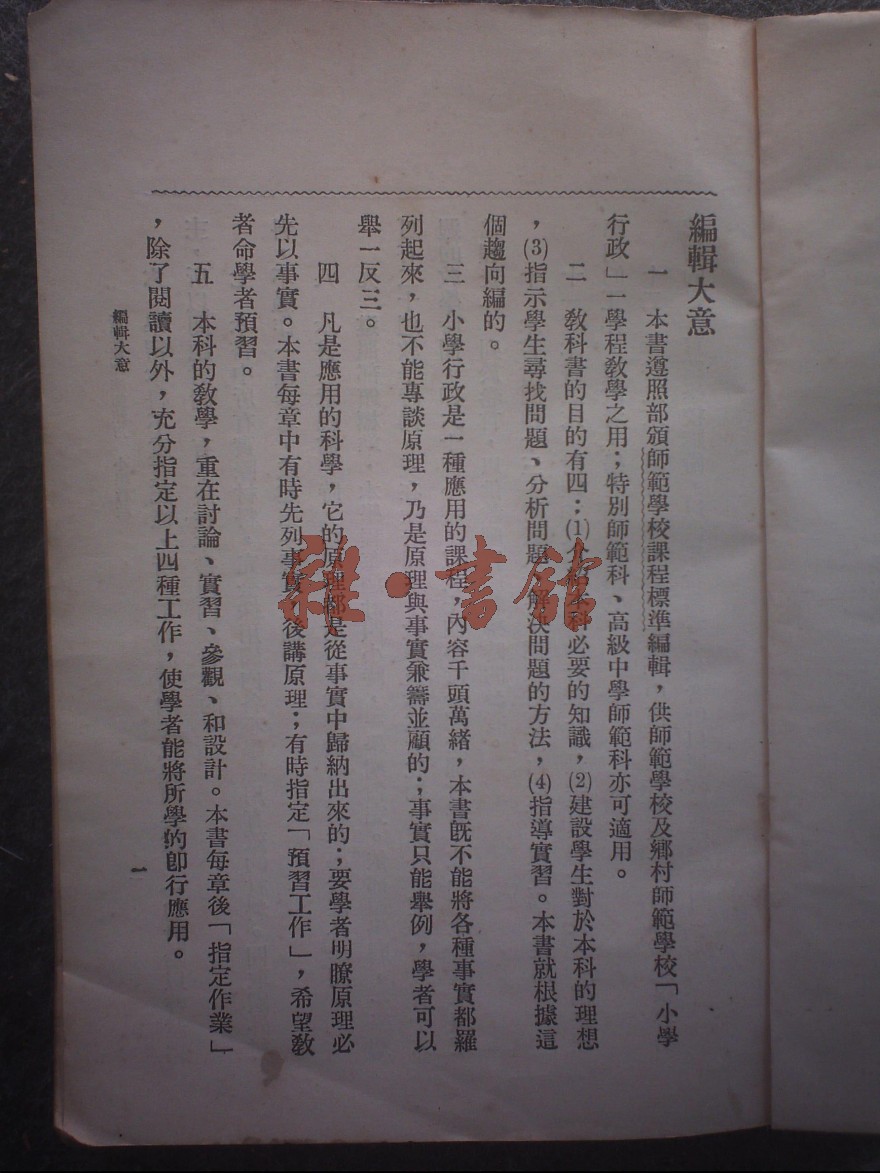 編輯大意
一　本書遵照部頒師範學校課程標準編輯，供師範學校及鄉村師範學校「小學
行政」一學程敎學之用；特別師範科、高級中學師範科亦可適用。
二　敎科書的目的有四；⑴介紹本科必要的知識，⑵建設學生對於本科的理想
，⑶指示學生尋找問題、分析問題、解決問題的方法，⑷指導實習。本書就根據這
個趨向編的。
三　小學行政是一種應用的課程，內容千頭萬緒，本書旣不能將各種事實都羅
列起來，也不能專談原理，乃是原理與事實兼籌並顧的；事實只能舉例，學者可以
舉一反三。
四　凡是應用的科學，它的原理都是從事實中歸納出來的；要學者明瞭原理必
先以事實。本書每章中有時先列事實，後講原理；有時指定「預習工作」，希望敎
者命學者預習。
五　本科的敎學，重在討論、實習、參觀、和設計。本書每章後「指定作業」
，除了閱讀以外，充分指定以上四種工作，使學者能將所學的卽行應用。
編輯大意
一
雜·書館